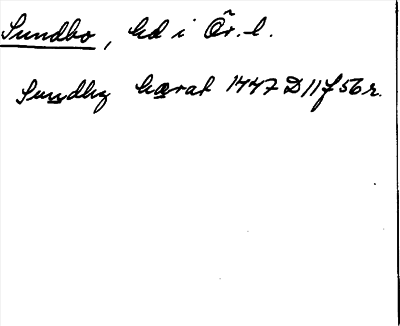 Sundbo, hd i Ör. l.
Sundby hærat 1447 D 11 f 56 r.